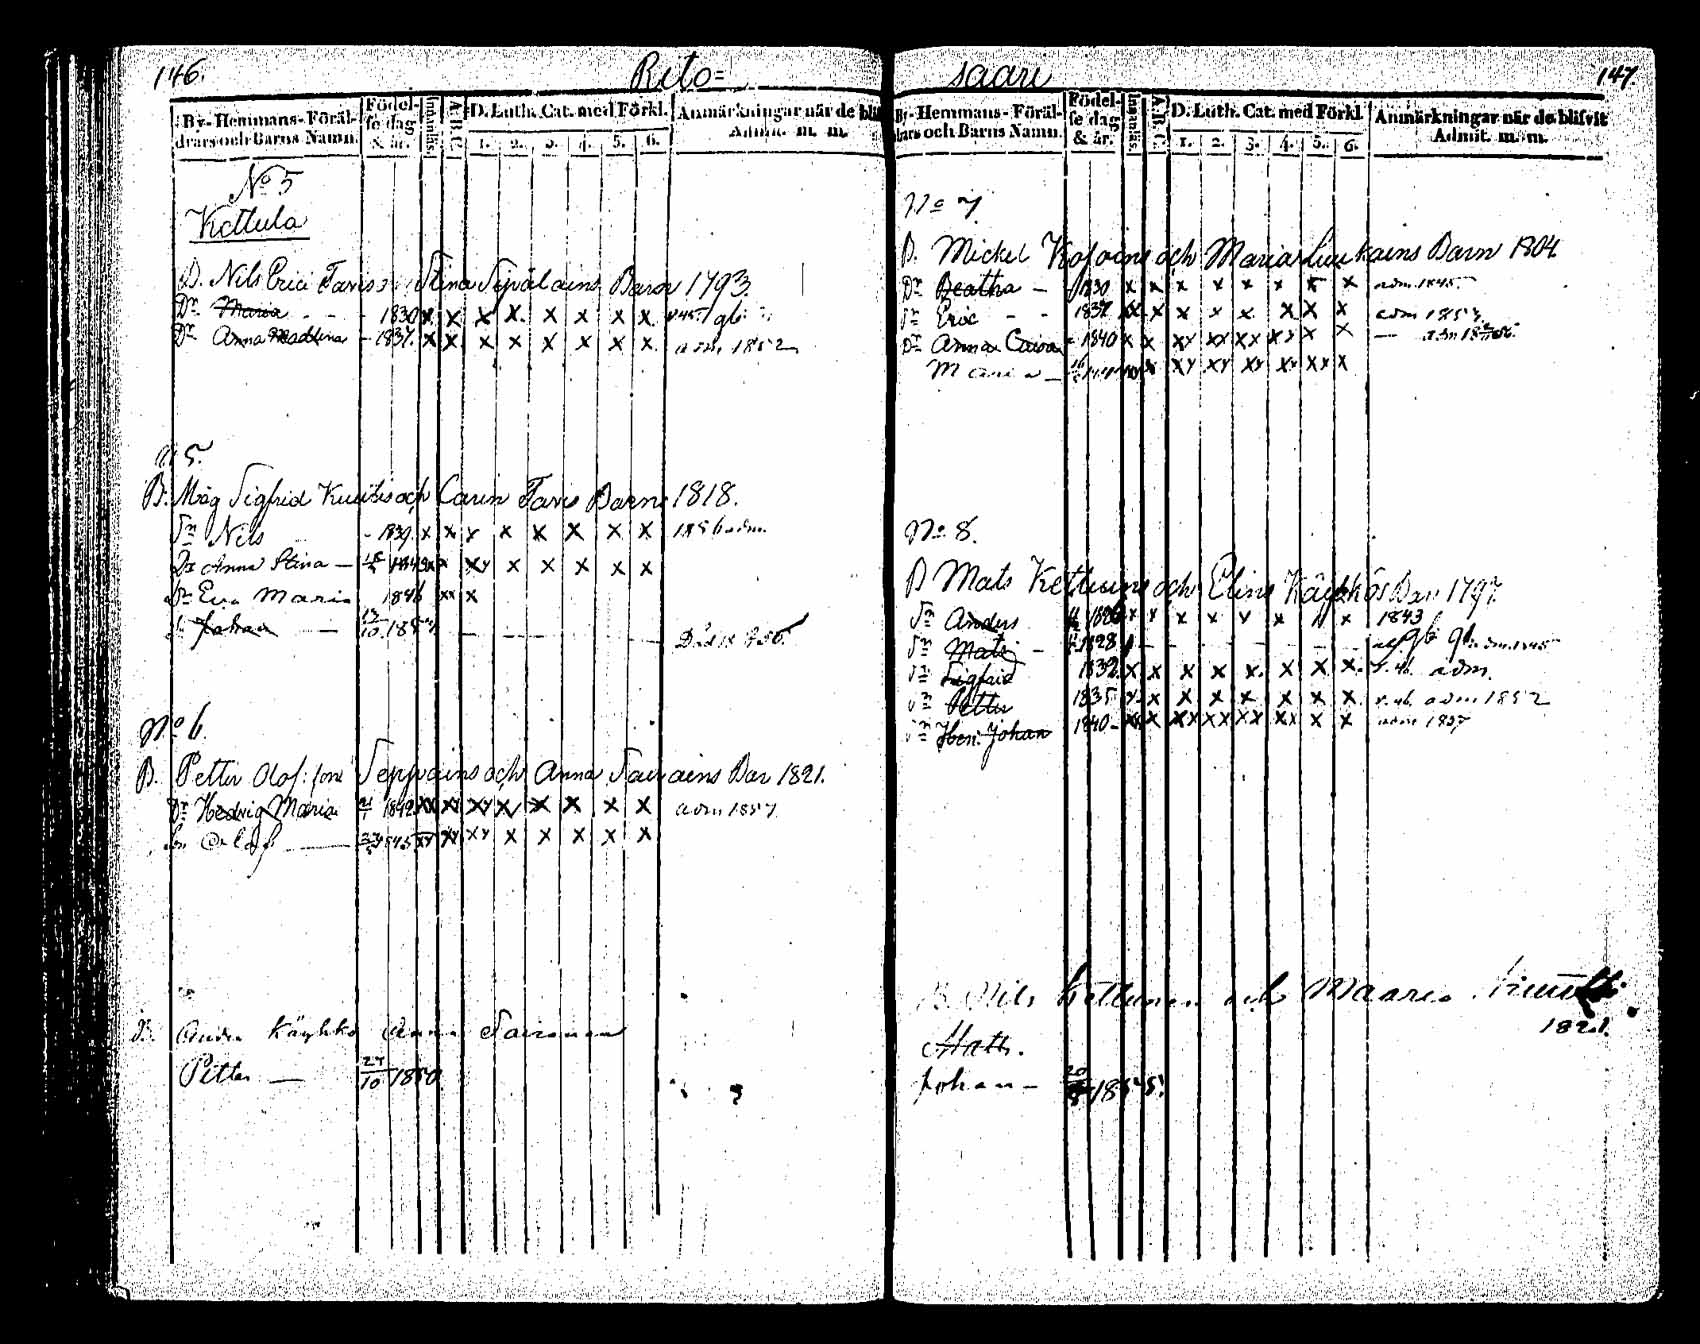 146.
Rito=
By- Hemmans- Föräl-
drars och Barns Namn.
Födel-
se dag
& år.
Innanläs.
A.B.C.
D. Luth. Cat. med Förkl.
1. 2. 3. 4. 5. 6.
Anmärkningar når de blif
Admit. m. m.
No 5
Kettula
B. Nils Erici Tavis Stina Sipäläins Barn 1793.
Dr Maria - - - 1830 x x x x x x x x
Dr Anna Madlena - 1837. x x x x x x x x adm 1852
N 5.
B. Måg Sigfrid Kuitis och Carin Tavis Barn 1818.
Sn Nils - 1839. x x x x x x x x 1856 adm.
Dr Anna Stina - 1843 xx x xy x x x x x
Dr Eva Maria 1846 xx x
Sn Johan - 13/10 185
No 6.
B. Petter Olof: sons Seppäins och Anna Sairains Bar 1821.
Dr Hedvig Maria 21/1 1842 xx xy xy x x x x x adm 1857.
Sn Olof 1845 xy xy xy x x x x x
B. Anders Käyhkö Anna Sairanen
Petter - 27/10 1850
saari
147.
By- Hemmans- Föräl-
drars och Barns Namn.
Födel-
se dag
& år.
Innanläs.
A.B.C.
D. Luth. Cat. med Förkl.
1. 2. 3. 4. 5. 6.
Anmärkningar når de blifvit
Admit. m. m.
No 7.
B. Mickel Kosoins och Maria Liukains Barn 1804
Dr Beatha - 1830 x x x x x x x x adm. 1845.
Sn Eric - - 1837 x x x x x x x x adm 1857.
Dr Anna Caisa - 1840 x x xy xy xx xy x x
Maria - xy x xy xy xy xy xy x
No 8.
B Mats Kettuins och Elins Käyhkös Bar 1797.
Sn Anders 1826 x x x x x x x x 1843
Sn Mats - 1828
Sn Sigfrid 1832 x x x x x x x x adm.
Sn Petter 1835 x x x x x x x x adm 1852
Sn Hen: Johan 1840 - xx x xx xx xx xx x x adm 1857
B. Nils Kettunen och Maaria
1821.
Math.
Johan - 1855.